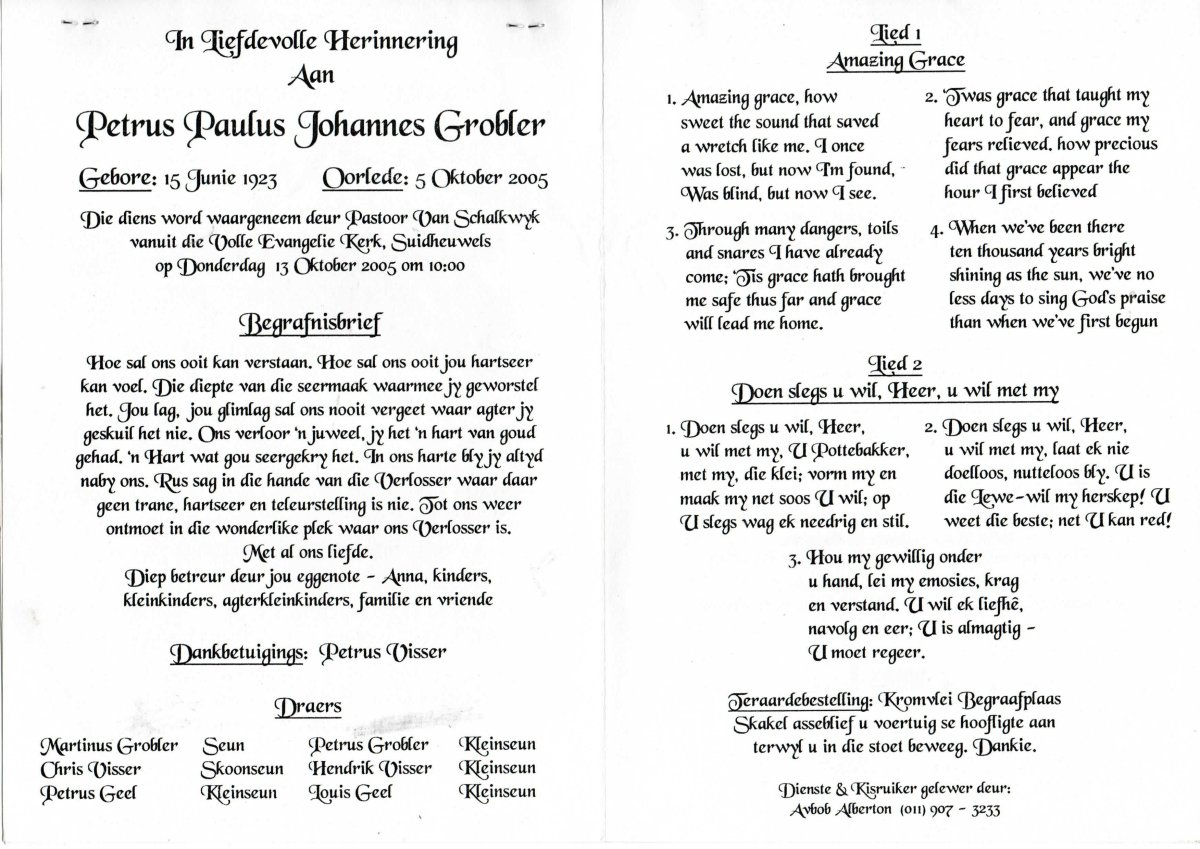 In Liefdevolle Herinnering
Aan
Petrus Paulus Johannes Grobler
Gebore: 15 Junie 1923 Oorlede: 5 Oktober 2005
Die diens word waargeneem deur Pastoor Van Schalkwyk
vanuit die Volle Evangelie Kerk, Suidheuwels
op Donderdag 13 Oktober 2005 om 10:00
Begrafnisbrief
Hoe sal ons ooit kan verstaan. Hoe sal ons ooit jou hartseer
kan voel. Die diepte van die seermaak waarmee jy geworstel
het. Jou lag, jou glimlag sal ons nooit vergeet waar agter jy
geskuil het nie. Ons verloor 'n juweel, jy het 'n hart van goud
gehad. 'n Hart wat gou seergekry het. In ons harte bly jy altyd
naby ons. Rus sag in die hande van die Verlosser waar daar
geen trane, hartseer en teleurstelling is nie. Tot ons weer
ontmoet in die wonderlike plek waar ons Verlosser is.
Met al ons liefde.
Diep betreur deur jou eggenote - Anna, kinders,
kleinkinders, agterkleinkinders, familie en vriende
Dankbetuigings: Petrus Visser
Draers
Martinus Grobler Seun Petrus Grobler Kleinseun
Chris Visser Skoonseun Hendrik Visser Kleinseun
Petrus Geel Kleinseun Louis Geel Kleinseun
Lied 1
Amazing Grace
1. Amazing grace, how
sweet the sound that saved
a wretch like me. I once
was lost, but now I'm found,
Was blind, but now I see.
2. 'Twas grace that taught my
heart to fear, and grace my
fears relieved. how precious
did that grace appear the
hour I first believed
3. Through many dangers, toils
and snares I have already
come; 'Tis grace hath brought
me safe thus far and grace
will lead me home.
4. When we've been there
ten thousand years bright
shining as the sun, we've no
less days to sing God's praise
than when we've first begun
Lied 2
Doen slegs u wil, Heer, u wil met my
1. Doen slegs u wil, Heer,
u wil met my, U Pottebakker,
met my, die klei; vorm my en
maak my net soos U wil; op
U slegs wag ek needrig en stil.
2. Doen slegs u wil, Heer,
u wil met my, laat ek nie
doelloos, nutteloos bly. U is
die Lewe-wil my herskep! U
weet die beste; net U kan red!
3. Hou my gewillig onder
u hand, lei my emosies, krag
en verstand. U wil ek liefhê,
navolg en eer; U is almagtig -
U moet regeer.
Teraardebestelling: Kromvlei Begraafplaas
Skakel asseblief u voertuig se hoofligte aan
terwyl u in die stoet beweeg. Dankie.
Dienste & Kisruiker gelewer deur:
Avbob Alberton (011) 907 - 3233